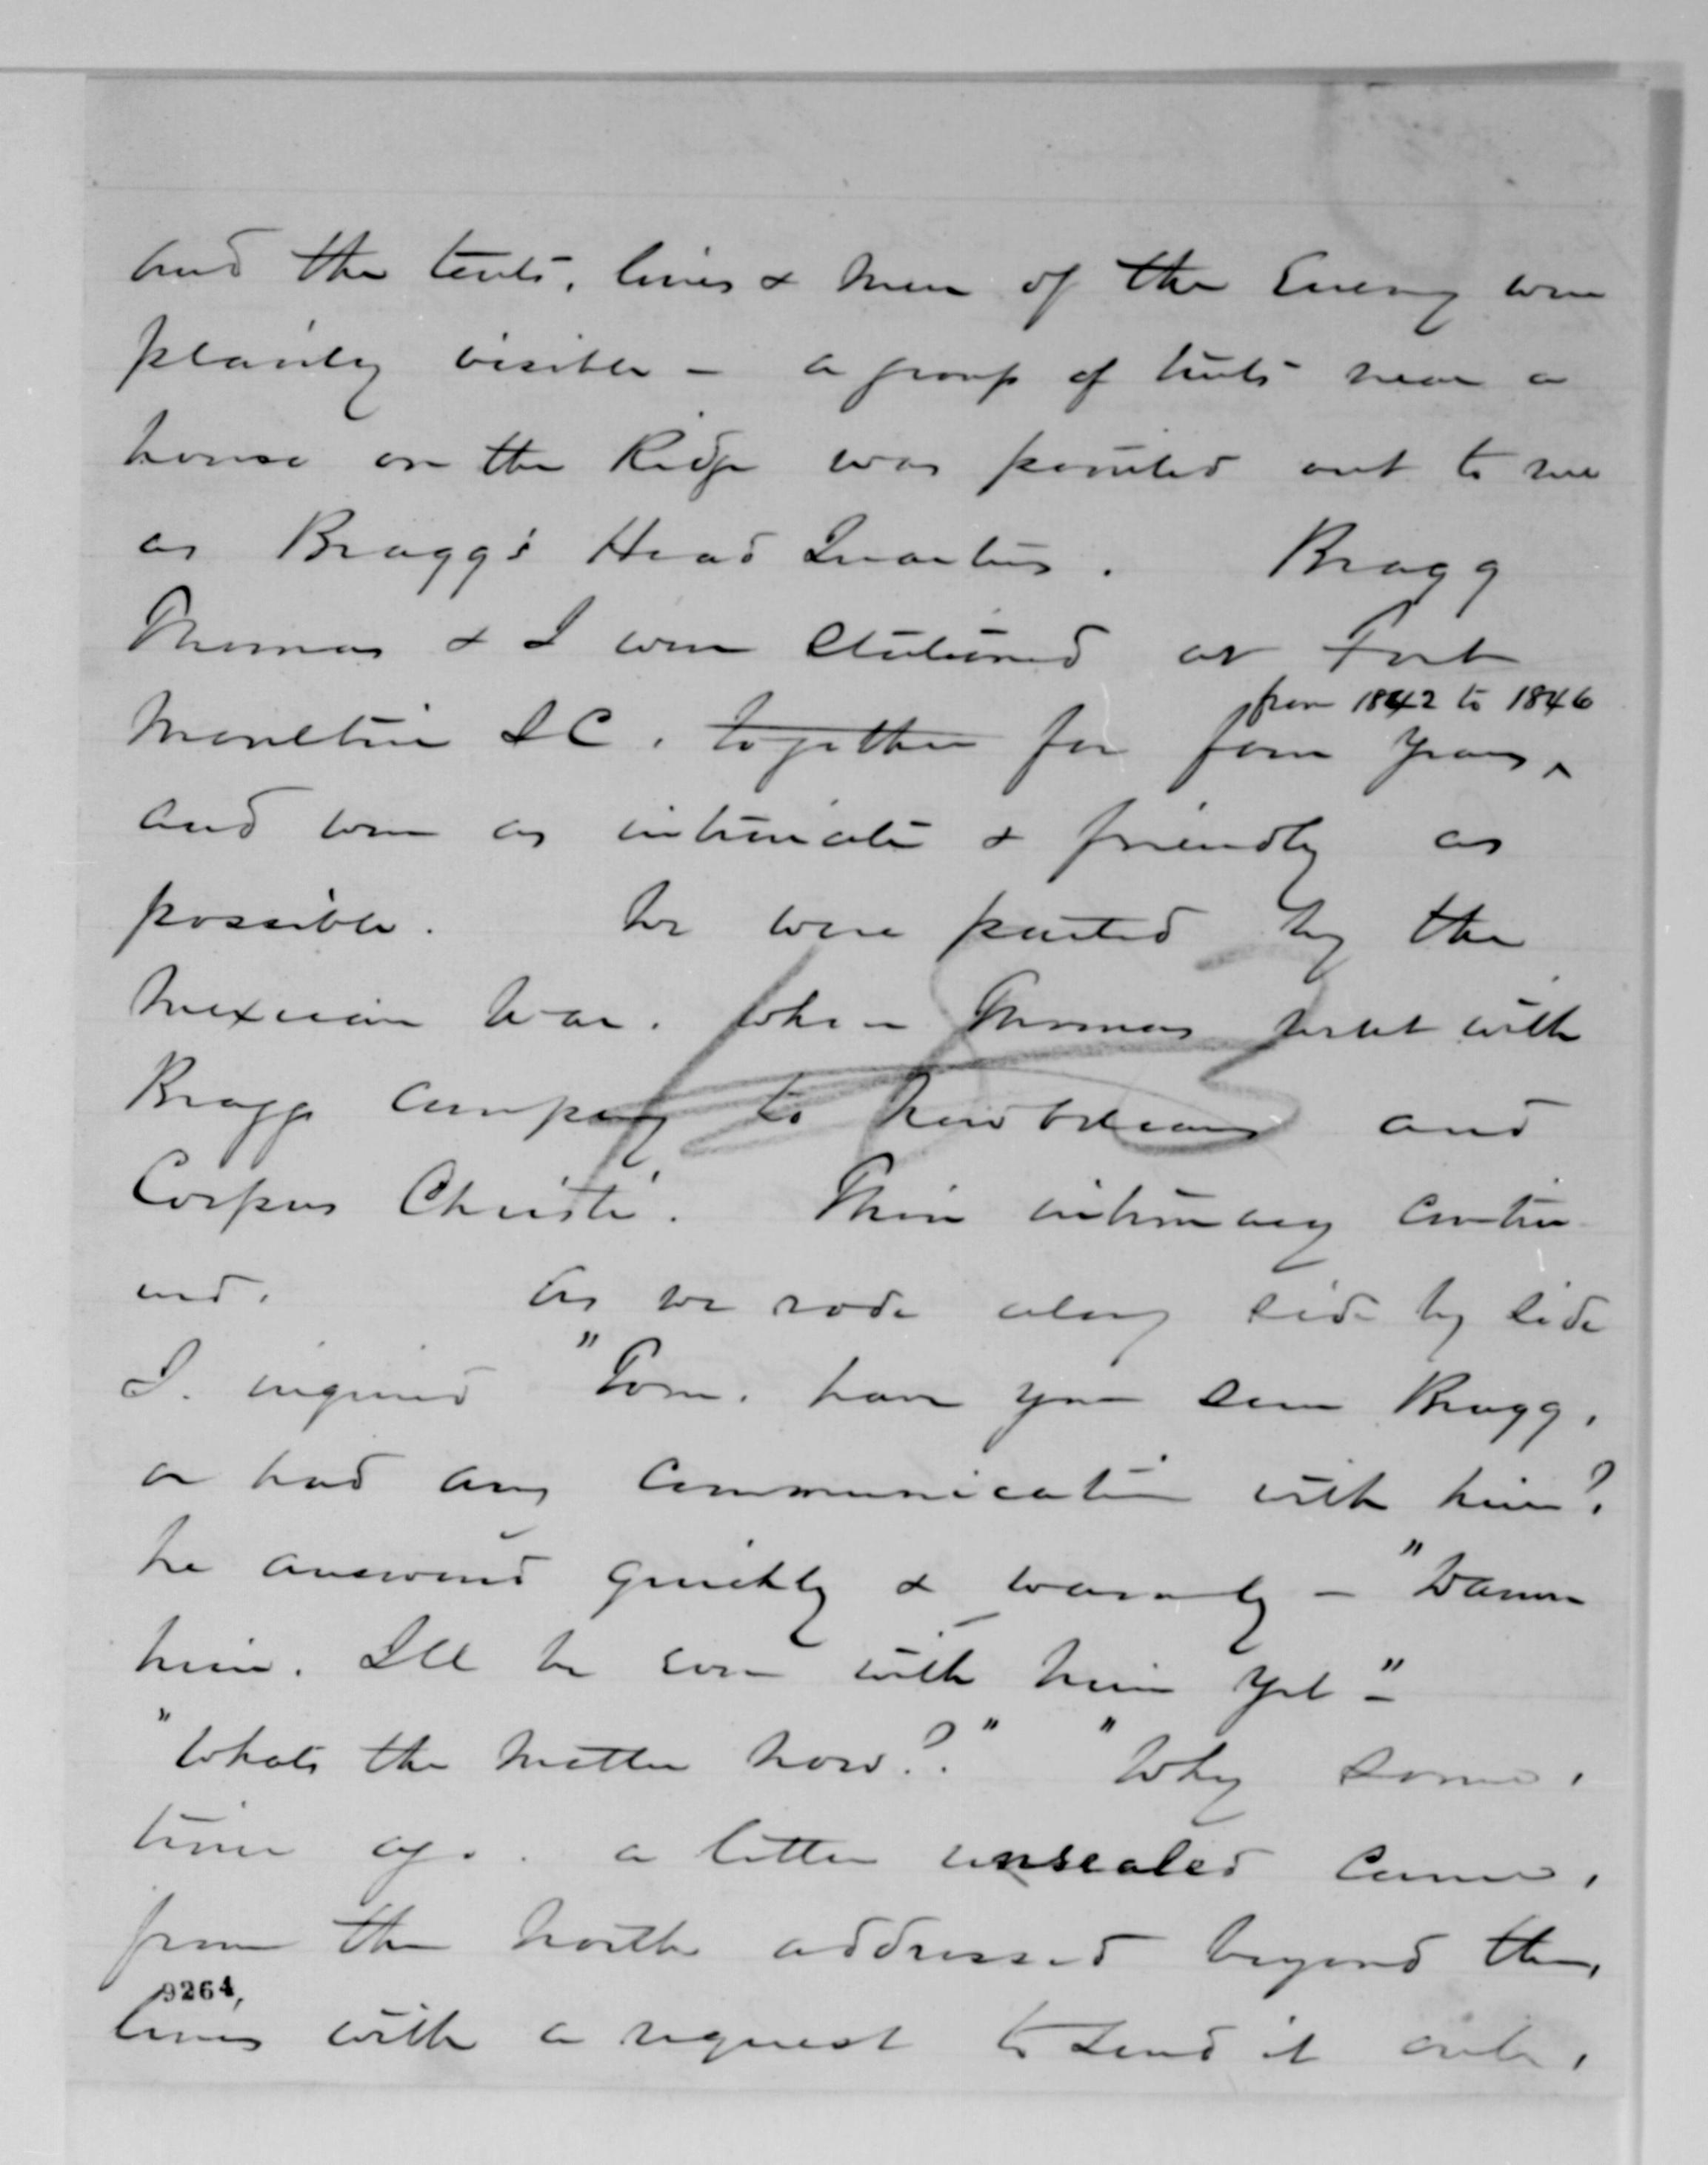 and the tents, lines & men of the Enemy were
plainly visible - a group of tents near a
house on the Ridge was pointed out to me
as Bragg's Head Quarters. Bragg
Thomas & I were stationed at Fort
from 1842 to 1846
Moultrie S C. together for four years ^
and were as intimate & friendly as
possible. We were parted by the
Mexican War. when Thomas went with
Braggs Company to New Orleans and
Corpus Christi. Their intimacy contin
ued. As we rode along side by side
I. inquired "Tom. have you seen Bragg,
or had any communication with him?
he answered quickly & warmly - "Damn
him. Ill be even with him yet"-
"Whats the matter now?." "Why some,
time ago. a letter unsealed came,
from the North addressed beyond the,
9264,
lines with a request to send it over,